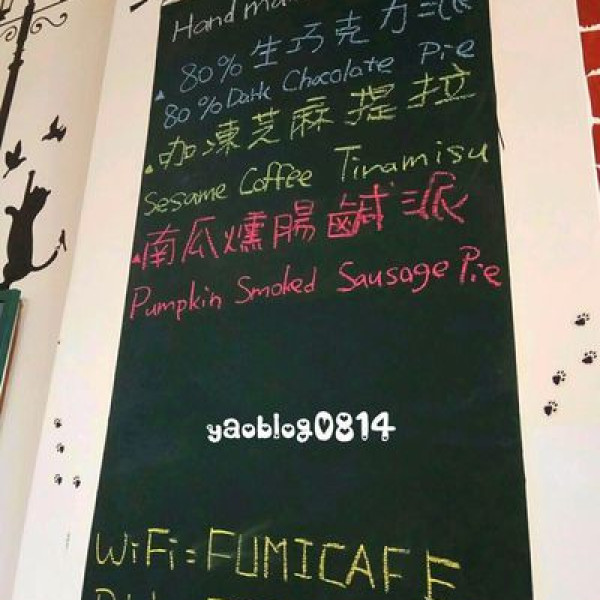 Hand ma
80%生巧克力派
80%Dark Chocolate Pie
咖凍芝麻提拉
Sesame Coffee Tiramisu
南瓜燻腸鹹派
Pumpkin Smoked Sausage Pie
yaoblog0814
WiFi=FUMICAFE